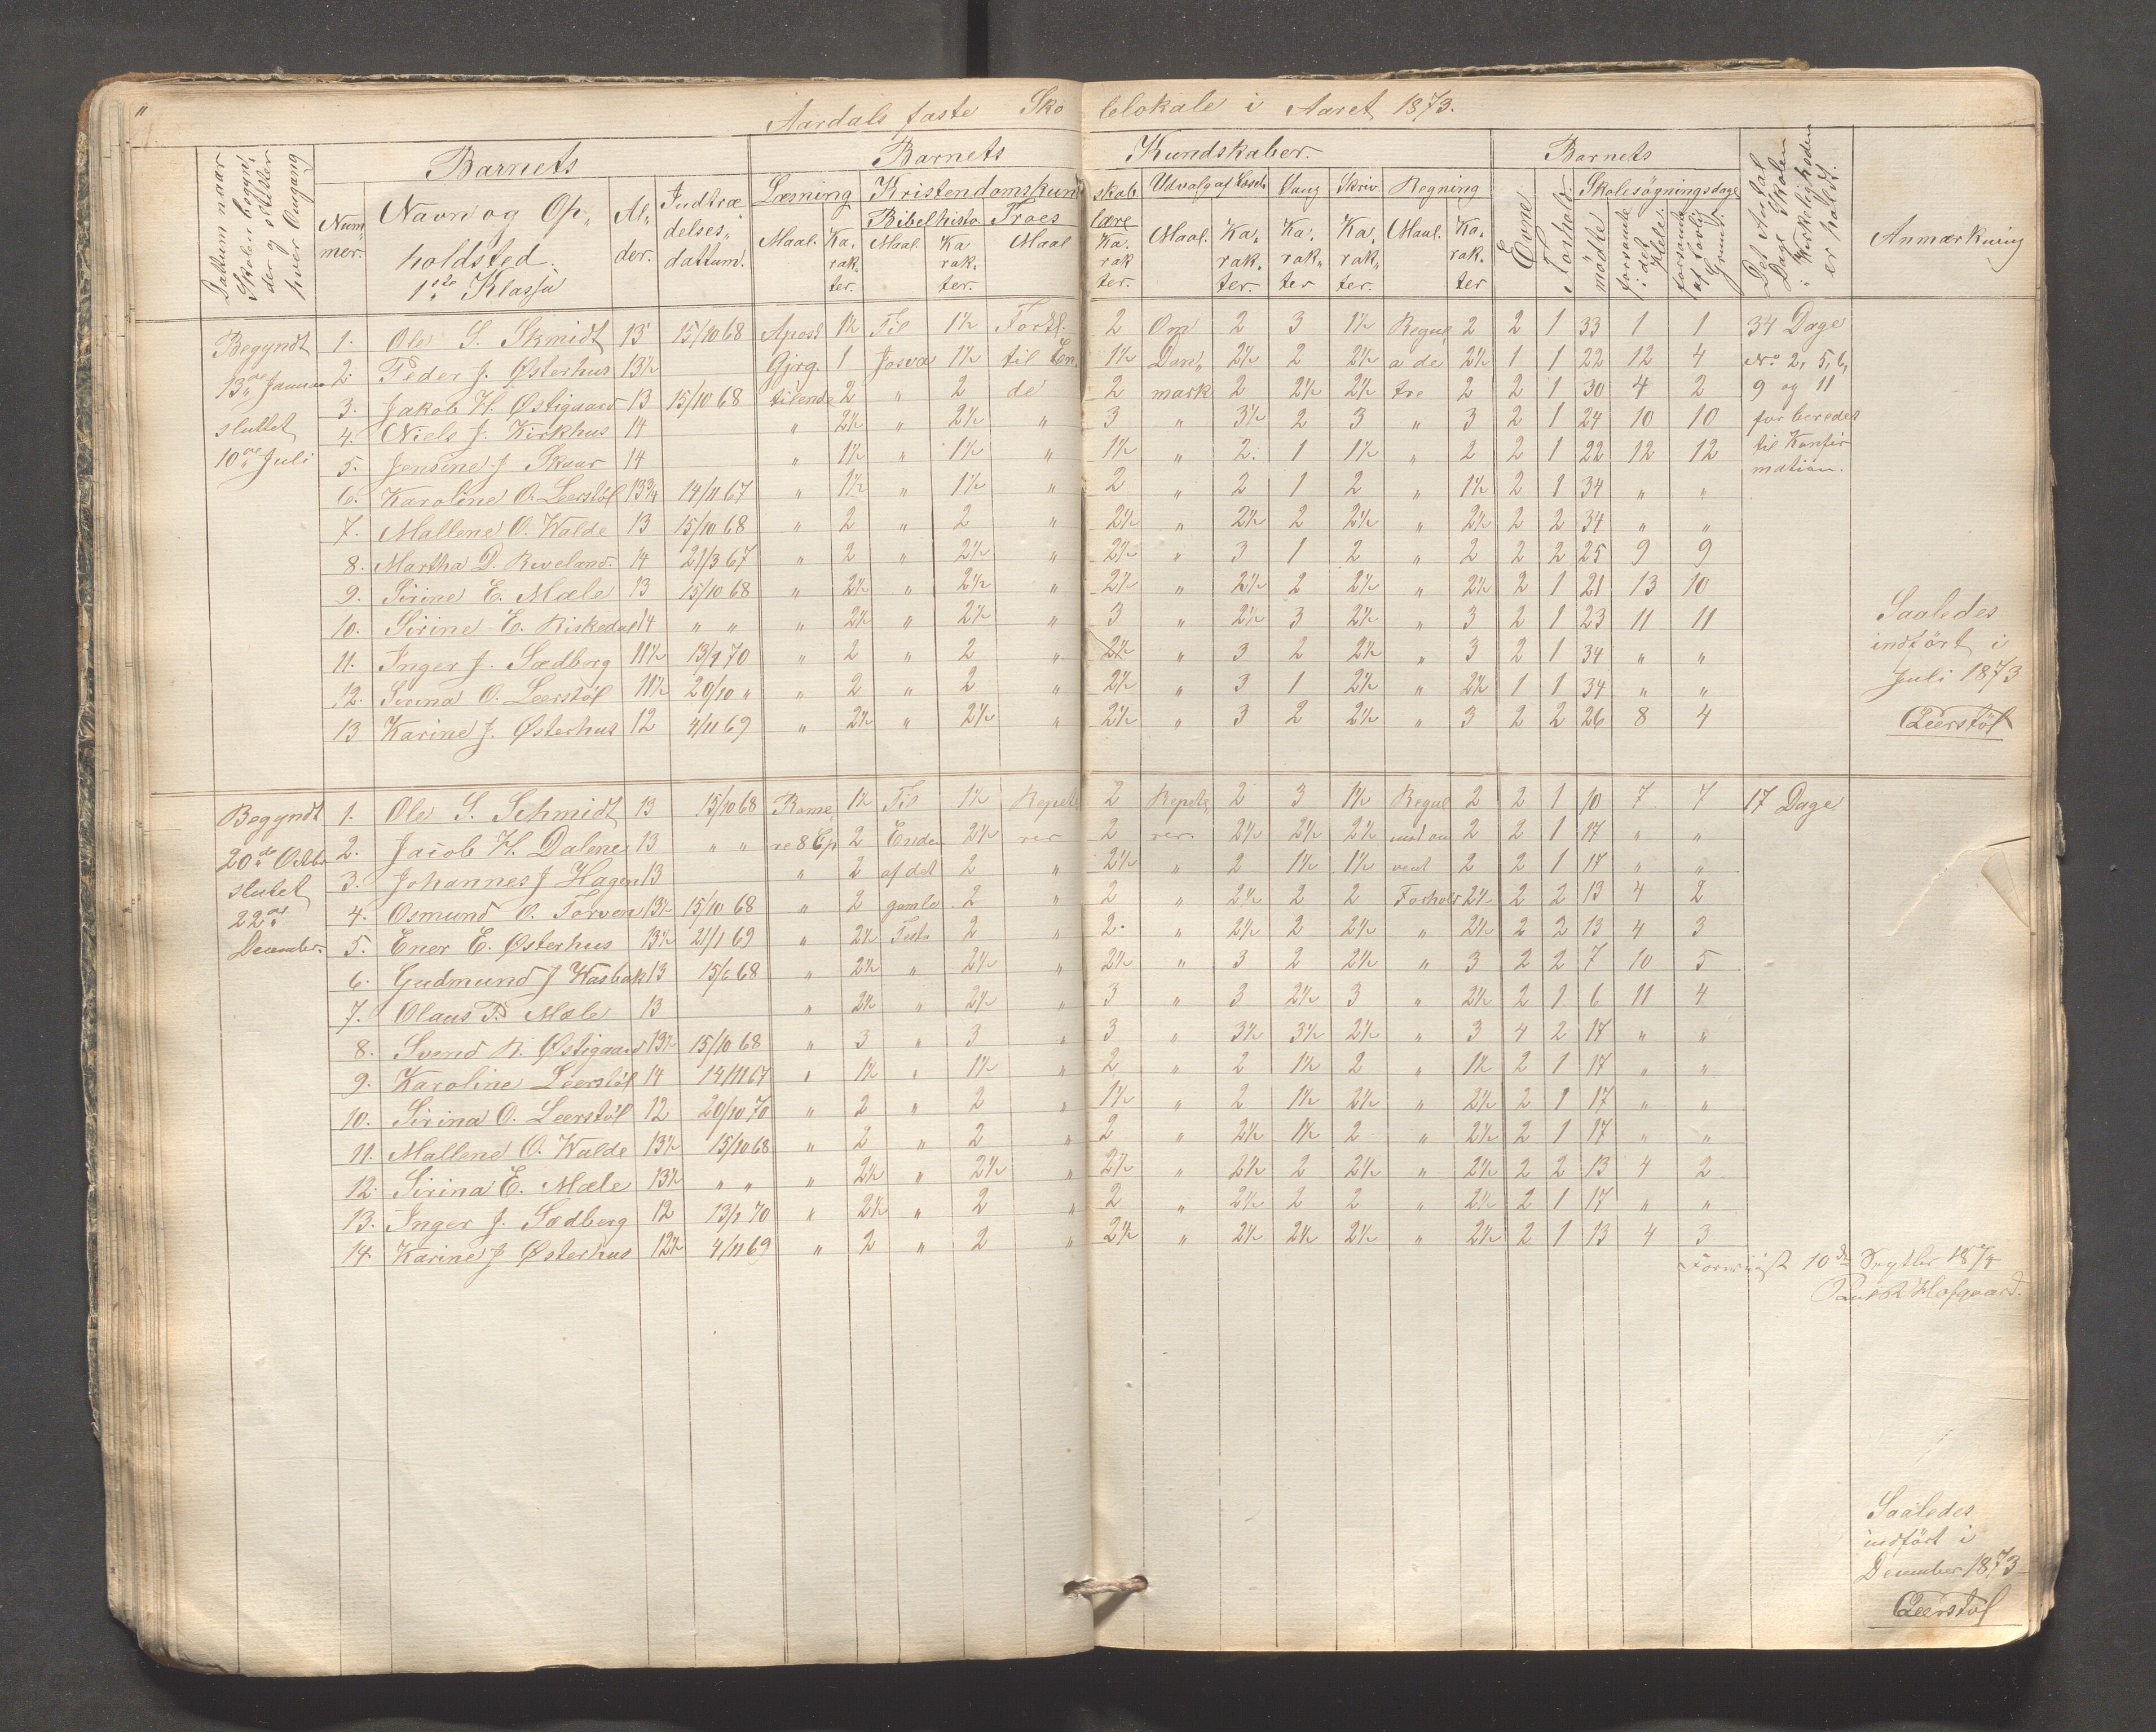 Aardals faste Skolelokale i Aaret 1873.
Dattum naar Skolen begynder og slutter hver Omgang
Barnets
Nummer. Navn og Opholdsted. 1ste Klasse Alder. Indtrædelses dattum.
Barnets Kundskaber.
Læsning Maal. Karakter.
Kristendomskundskab
Bibelhisto Maal. Karakter. Troeslære Maal Karakter.
Udvalg af Læseb Maal. Karakter. Sang Karakter Skriv Karakter. Regning Maal. Karakter
Barnets
Evne Forhold. Skolesøgningsdage mødte forsømte i det Hele. forsømte af lovlig Grund.
Det Antal Dage Skolen i Virkeligheden er holdt.
Anmærkning
Begyndt
13de Januar
sluttet
10de Juli
1. Ole S. Skmidt 13 15/10 68 Apost 1½ Til 1½ Fortl. 2 Om 2 3 1½ Regul 2 2 1 33 1 1 34 Dage
2. Peder J. Østerhus 13½ Gjrg. 1 Josva 1½ til En 1½ Dan 2½ 2 2½ a de 2½ 1 1 22 12 4 No 2, 5, 6,
3. Jakob H. Østigaard 13 15/10 68 tilende 2 " 2 de 2 mark 2 2½ 2½ tre 2 2 1 30 4 2 9 og 11
4. Niels J. Kirkhus 14 " 2½ " 2½ " 3 " 3½ 2 3 " 3 2 1 24 10 10 forberedes
5. Jensine J Skaar 14 " 1½ " 1½ " 1½ " 2. 1 1½ " 2 2 1 22 12 12 til Konfir
mation.
6. Karoline O. Leerstøl 13¾ 14/11 67 " 1½ " 1½ " 2 " 2 1 2 " 1½ 2 1 34 " "
7. Mallene O. Walde 13 15/10 68 " 2 " 2 " 2½ " 2½ 2 2½ " 2½ 2 2 34 " "
8. Martha D. Riveland. 14 21/3 67 " 2 " 2½ " 2½ " 3 1 2 " 2 2 2 25 9 9
9. Sirine E. Mæle 13 15/10 68 " 2½ " 2½ " 2½ " 2½ 2 2½ " 2½ 2 1 21 13 10
10. Sirine E. Riskedal 14 " " " 2½ " 2½ " 3 " 2½ 3 2½ " 3 2 1 23 11 11
11. Inger J. Sædberg 11½ 13/1 70 " 2 " 2 " 2½ " 3 2 2½ " 3 2 1 34 " "
12. Sirina O. Leerstøl 11½ 20/10 " " 2 " 2 " 2½ " 3 1 2½ " 2½ 1 1 34 " "
13 Karine J. Østerhus 12 4/11 69 " 2½ " 2½ " 2½ " 3 2 2½ " 3 2 2 26 8 4
Saaledes
indført i
Juli 1873
Leerstøl
Begyndt
20de Octbr
slutet
22de
December.
1. Ole S. Schmidt 13 15/10 68 Rome 1½ Til 1½ Repete 2 Repete 2 3 1½ Regul 2 2 1 10 7 7 17 Dage
2. Jacob H. Dalene 13 " " re 8 Cp 2 Ende 2½ rer 2 rer. 2½ 2½ 2½ 2 2 1 17 " "
3. Johannes J Hagen 13 " 2 af det 2 " 2½ " 2 1½ 1½ vent 2 2 1 17 " "
4. Osmund O. Torven 13½ 15/10 68 " 2 gamle 2 " 2 " 2½ 2 2 Forhold 2½ 2 2 13 4 2
5. Ener E. Østerhus 13½ 21/1 69 " 2½ Testa 2 " 2. " 2½ 2 2½ " 2½ 2 2 13 4 3
6. Gudmund J Wasbak 13 15/6 68 " 2½ " 2½ " 2½ " 3 2 2½ " 3 2 2 7 10 5
7. Olaus T. Mæle 13 " 2½ " 2½ " 3 " 3 2½ 3 " 2½ 2 1 6 11 4
8. Svend R. Østigaard 13½ 15/10 68 " 3 " 3 " 3 " 3½ 3½ 2½ " 3 4 2 17 " "
9. Karoline Leerstøl 14 14/11 67 " 1½ " 1½ " 2 " 2 1½ 2 " 1½ 2 1 17 " "
10. Sirina O. Leerstøl 12 20/10 70 " 2 " 2 " 1½ " 2 1½ 2½ " 2½ 2 1 17 " "
11. Mallene O. Walde 13½ 15/10 68 " 2 " 2 " 2 " 2½ 1½ 2 " 2½ 2 1 17 " "
12. Sirina E. Mæle 13½ " " " 2½ " 2½ " 2½ " 2½ 2 2½ " 2½ 2 2 13 4 2
13. Inger J. Sædberg 12 13/1 70 " 2½ " 2 " 2 " 2½ 2 2 " 2½ 2 1 17 " "
14. Karine J Østerhus 12½ 4/11 69 " 2 " 2 " 2½ " 2½ 2½ 2½ " 2½ 2 1 13 4 3
Forevist 10de 1874
Hofgaard.
Saaledes
indført i
December 1873
Leerstøl